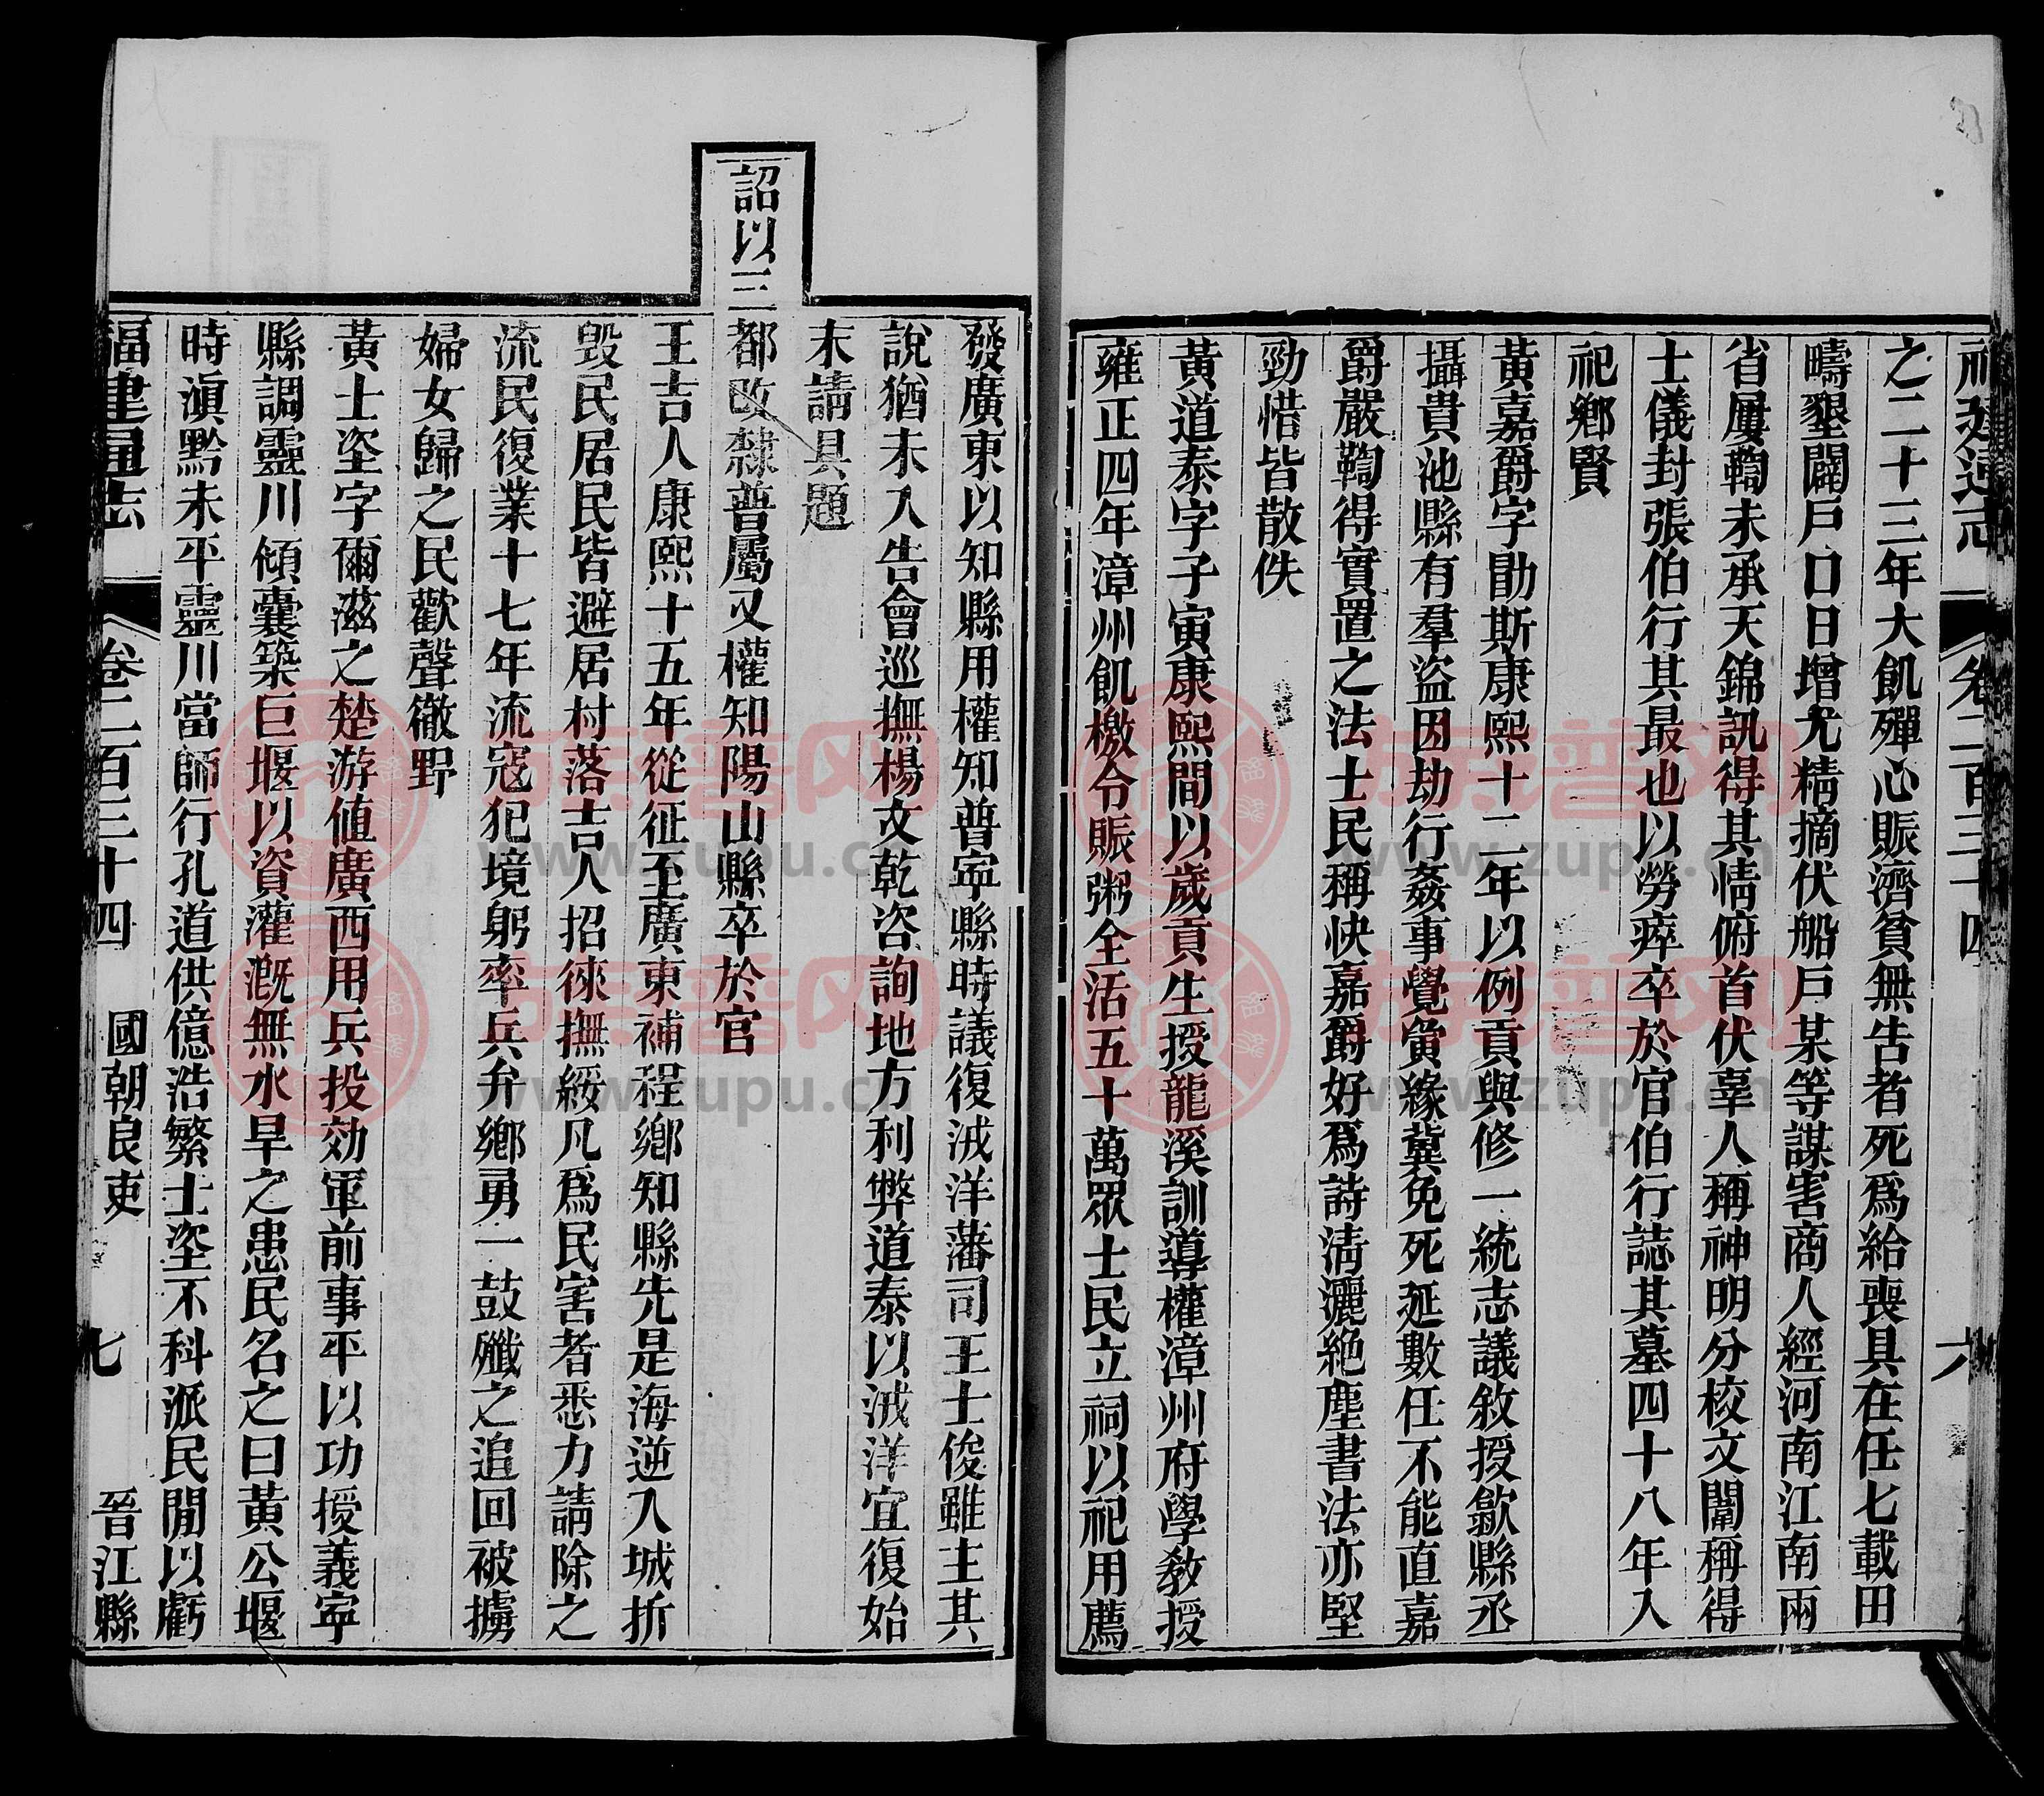 福建通志 卷二百三十四 六
之二十三年大飢殫心賑濟貧無告者死爲給喪具在任七載田
疇墾闢戶口日增尤精摘伏船戶某等謀害商人經河南江南兩
省屢鞫未承天錦訊得其情俯首伏辜人稱神明分校文闈稱得
士儀封張伯行其最也以勞瘁卒於官伯行誌其墓四十八年入
祀鄉賢
黃嘉爵字勛斯康熙十二年以例貢與修一統志議敘授歙縣丞
攝貴池縣有羣盜因劫行姦事覺夤緣冀免死延數任不能直嘉
爵嚴鞫得實置之法士民稱快嘉爵好爲詩淸灑絶塵書法亦堅
勁惜皆散佚
黃道泰字子寅康熙間以歲貢生授龍溪訓導權漳州府學教授
雍正四年漳州飢檄令賑粥全活五十萬眾士民立祠以祀用薦
發廣東以知縣用權知普寧縣時議復洊洋藩司王士俊雖主其
說猶未入告會巡撫楊文乾咨詢地方利弊道泰以洊洋宜復始
末請具題
詔以三都改隸普屬又權知陽山縣卒於官
王吉人康熙十五年從征至廣東補程鄉知縣先是海逆入城折
毀民居民皆避居村落吉人招徠撫綏凡爲民害者悉力請除之
流民復業十七年流寇犯境躬率兵弁鄉勇一鼓殲之追回被擄
婦女歸之民歡聲徹野
黃士垐字爾滋之楚游值廣西用兵投効軍前事平以功授義寧
縣調靈川傾囊築巨堰以資灌溉無水旱之患民名之曰黃公堰
時滇黔未平靈川當師行孔道供億浩繁士垐不科派民閒以虧
福建通志 卷二百三十四 國朝良吏 七 晉江縣
族谱网
www.zupu.cn
族谱网
www.zupu.cn
族谱网
www.zupu.cn
族谱网
www.zupu.cn